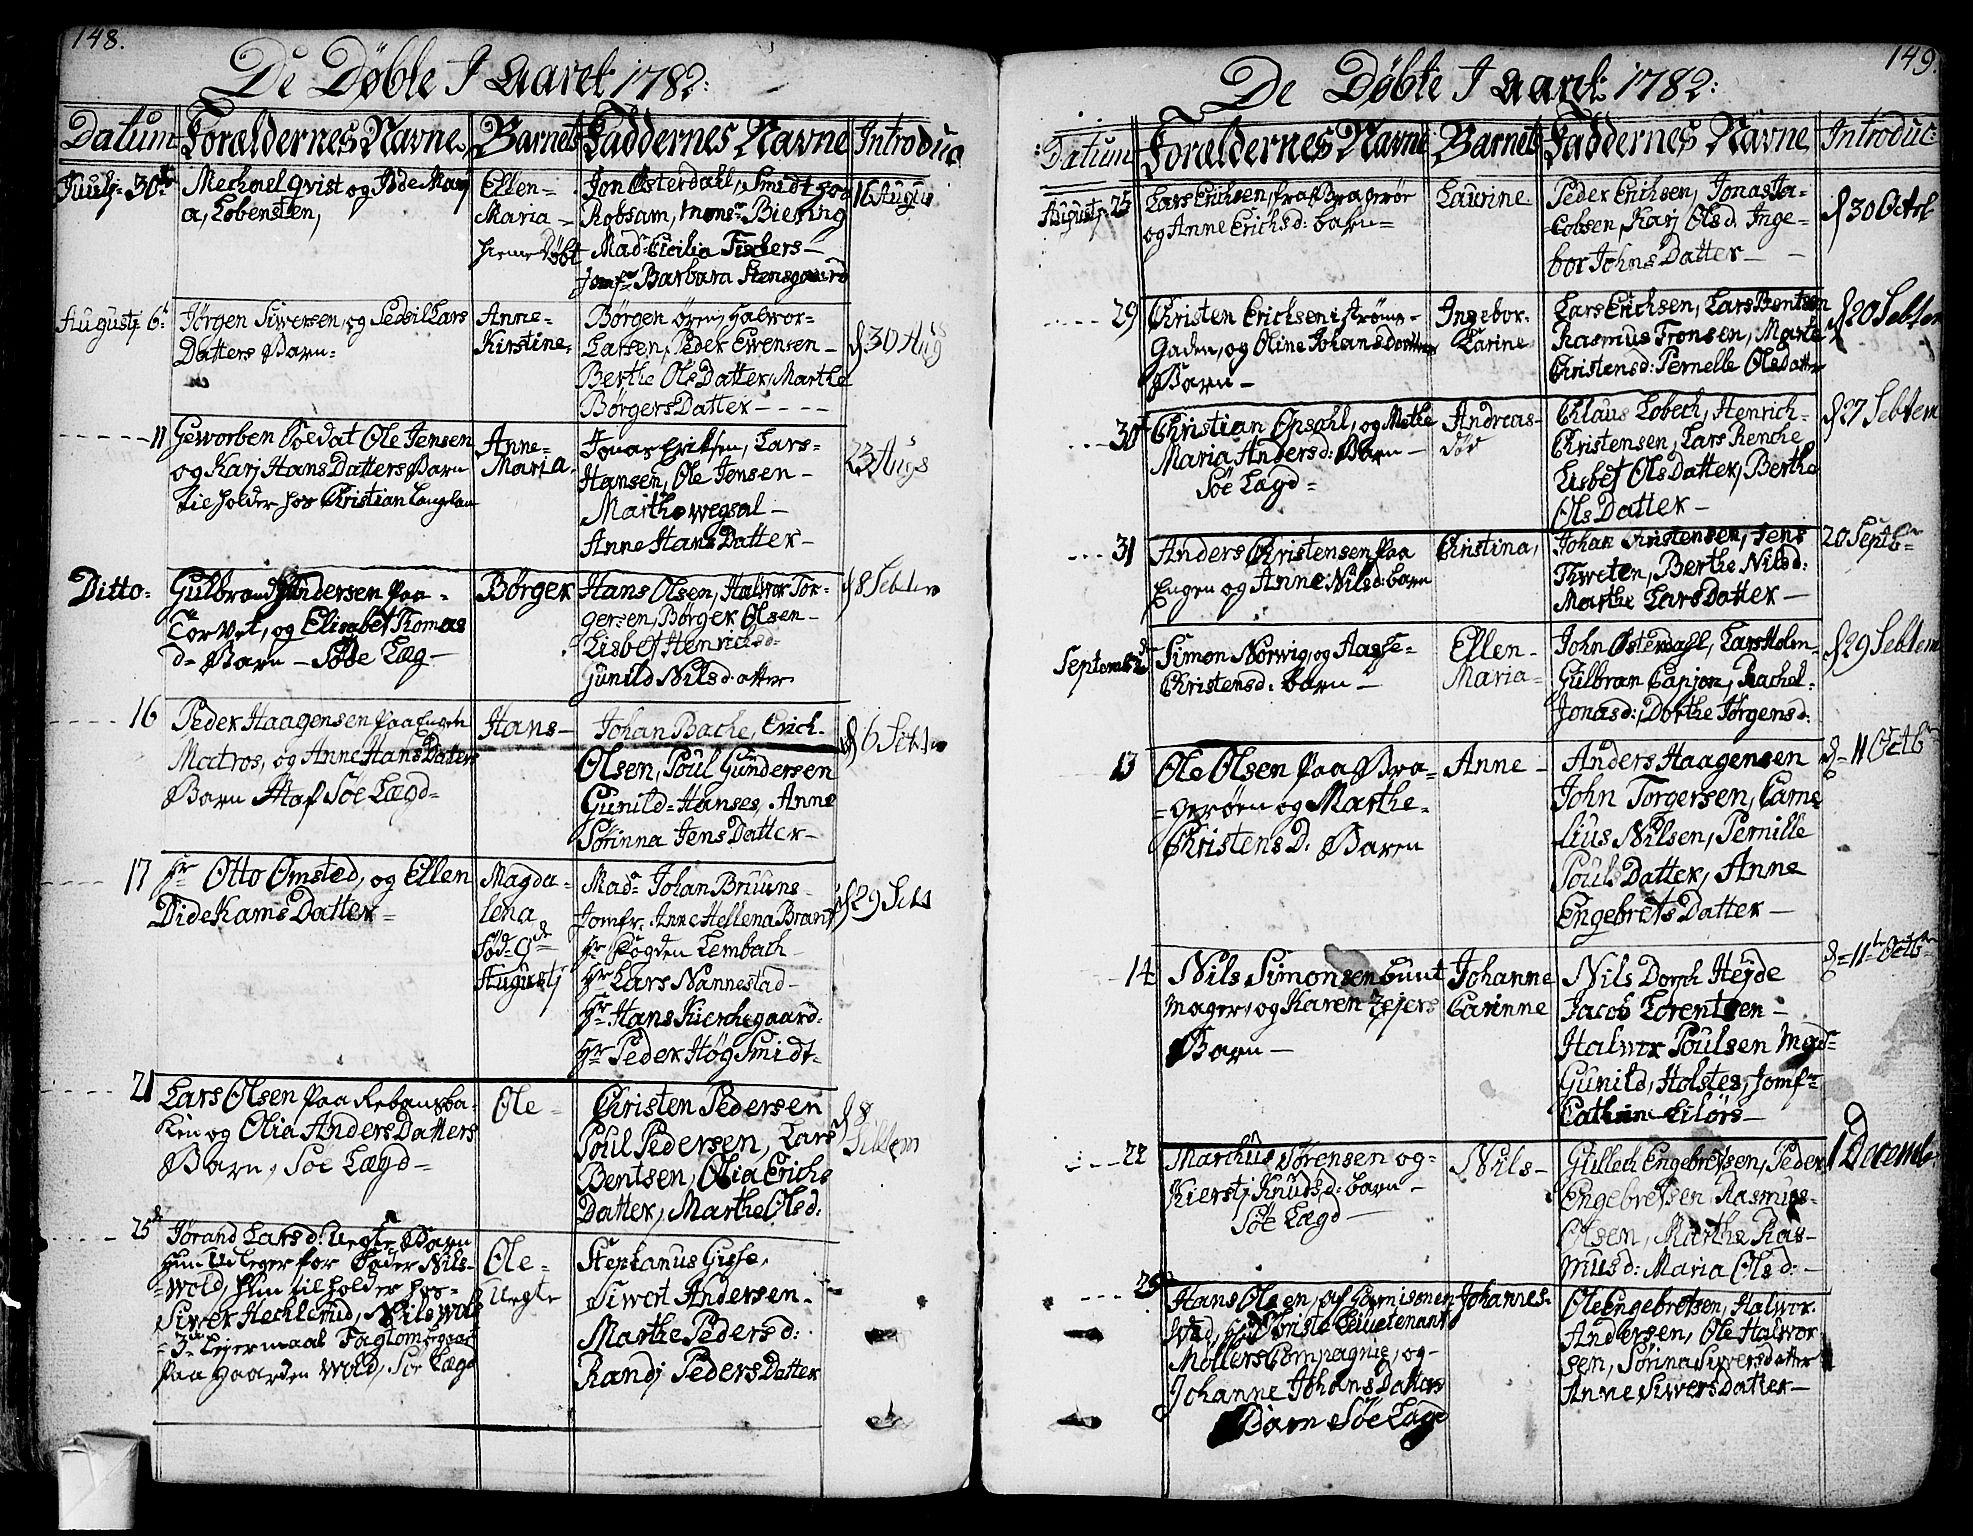 148.
De Døbte I Aaret 1782:
Datum Forældernes Navne, Barnets Faddernes Navne Introduc
Julij 30te Mechael Qvist og Ide Mari
a, Lobensten,
Ellen-
Maria-
hieme Døbt
Jon Østerdahl, Smidt hos
Robsam, Monsr Biering
Madr Cicilia Fischers-
Jomfr Barbara Stensgaard
16 Augus
Augustj 6t Jørgen Siwersen, og Sedsil Lars
Datters Barn-
Anne-
Kirstine-
Børgen Ørens Halwor-
Larsen, Peder Ewensen-
Berthe Ols Datter, Marthe
Børgers Datter - - - -
d. 30 Aug
- - - - - 11 Geworben Soldat Ole Jensen
og Karj Hans Datters Barn
tilholder hos Christian Langeland
Anne-
Maria.
Jonas Eriksen, Lars-
Hansen, Ole Jensen-
Marthe wegsal-
Anne Hans Datter-
23 Augs
Ditto- Gulbrand Andersen paa-
Torvet, og Elisabet Thomas
d- Barn - Søe Læg-
Børger
Hans Olsen, Halwor Tor-
gersen, Børger Olsen-
Lisbet Henrichsd-
Gunild Nilsd:atter
d 8 Sebtem
- - - - 16 Peder Haagensen paa Engen
Matros, og Anne Hans Datters
Barn af Søe Lægd-
Hans-
Johan Bache, Erich-
Olsen, Poul Gundersen
Gunild-Hanses, Anne
Sørinna Jens Datter-
d 6 Sebt
- - - - 17 Hr Otto Omsted, og Ellen
Didekams Datter-
Magda-
lena
Fød-9de
Augustj
Madr Johan Bruuns-
Jomfr. Anne Hellena Brandt
Hr Fogden Lembach-
Hr Lars Nannestad-
Hr Hans Kierchegaard-
Hr Peder Høg Smidt-
d 29 Sebt
- - - - 21 Lars Olsen paa Rebansba-
ken og Olia Anders Datters
Barn, Søe Lægd-
Ole-
Christen Pedersen
Poul Pedersen, Lars
Bentsen, Olia Erichs
Datter, Marthe Olsd:
d 8
Sebtem
- - - - 25de Jørand Larsd: Uegte Barn
hun udleger for Fader Nils-
-Wold, hun tilholder hos-
Siwer Hechlerud, Nils Wold
Lejermaal
paa Haarden Wold, Søe Lægd
Ole-
Uegte
Stephanus Gisse,
Siwert Andersen-
Marthe Peders d:
Randj Peders Datter

149.
De Døbte I Aaret 1782:
Datum Forældernes Navne Barnets Faddernes Navne Introduc:
Augustj 25 Lars Erichsen, fra Bragerøe
og Anne Erichsd: barn-
Laurine
Peder Erichsen, Jonas Ja-
cobsen, Karj Olsd. Inge-
bor Johns Datter- -
d 30 Octob
- - - - 29 Christen Erichsen i Strøms-
Gaden, og Oline Johans Datters
Barn-
Ingebor-
Carine
Lars Erichsen, Lars Bentsen
Rasmus Fronsen, Marte
Christensd: Pernelle Olsdatter
d 20 Sebtem
- - - 30t Christian Opsahl, og Mette
Maria Andersd: Barn-
Søe Lægd-
Andreas-
død
Chlaus Lobech, Henrich-
Christensen, Lars Renche
Lisbet Ols Datter, Berthe
Ols Datter-
d 27 Sebtem
- - - 31 Anders Christensen paa
Engen og Anne: Nilsd: barn
Christina,
Johan Christensen, Jens
Tweten, Berthe Nilsd:
Marthe Lars Datter-
20 Septbr
September Simon Norwig, og Aasse-
Christensd: barn-
Ellen-
Maria-
John Østerdahl, Lars Holm-
Gulbran Capjon, Rachel-
Jonasd:, Dorthe Jørgensd:
d 29 Sebtem
13 Ole Olsen paa Bra-
-gerøen og Marthe-
Christens D. Barn
Anne-
Anders Haagensen
John Torgersen, Carne
lius Nilsen, Pernille
Pouls Datter, Anne
Engebrets Datter-
d- 11 Octbr
14 Nils Simonsen Bunt
mager, og Karen Zejers
Barn-
Johanne
Carinne
Nils Dorph Hejde
Jacob Lorentsen-
Halwor Poulsen Madr
Gunild, Holstes, Jomfr
Cathrine Eilørs-
d- 11te Octbr
- - - 22 Marchus Sørensen og-
Kierstj Knudsd: barn-
Søe Lægd-
Nils-
Gullech Engebretsen, Peder
Engebretsen, Rasmus-
Olsen, Marthe Ras-
musd: Maria Olsd:-
1 Decemb
- - - 29 Hans Olsen, af Garnisonen
Møllers Compagnie, og-
Johanne Johans Datters
Barn Søe Lægd
Johannes-
Ole Engebretsen, Halwor-
Andersen, Ole Halwor
sen, Sørina Siversdatter
Anne Siwers Datter-